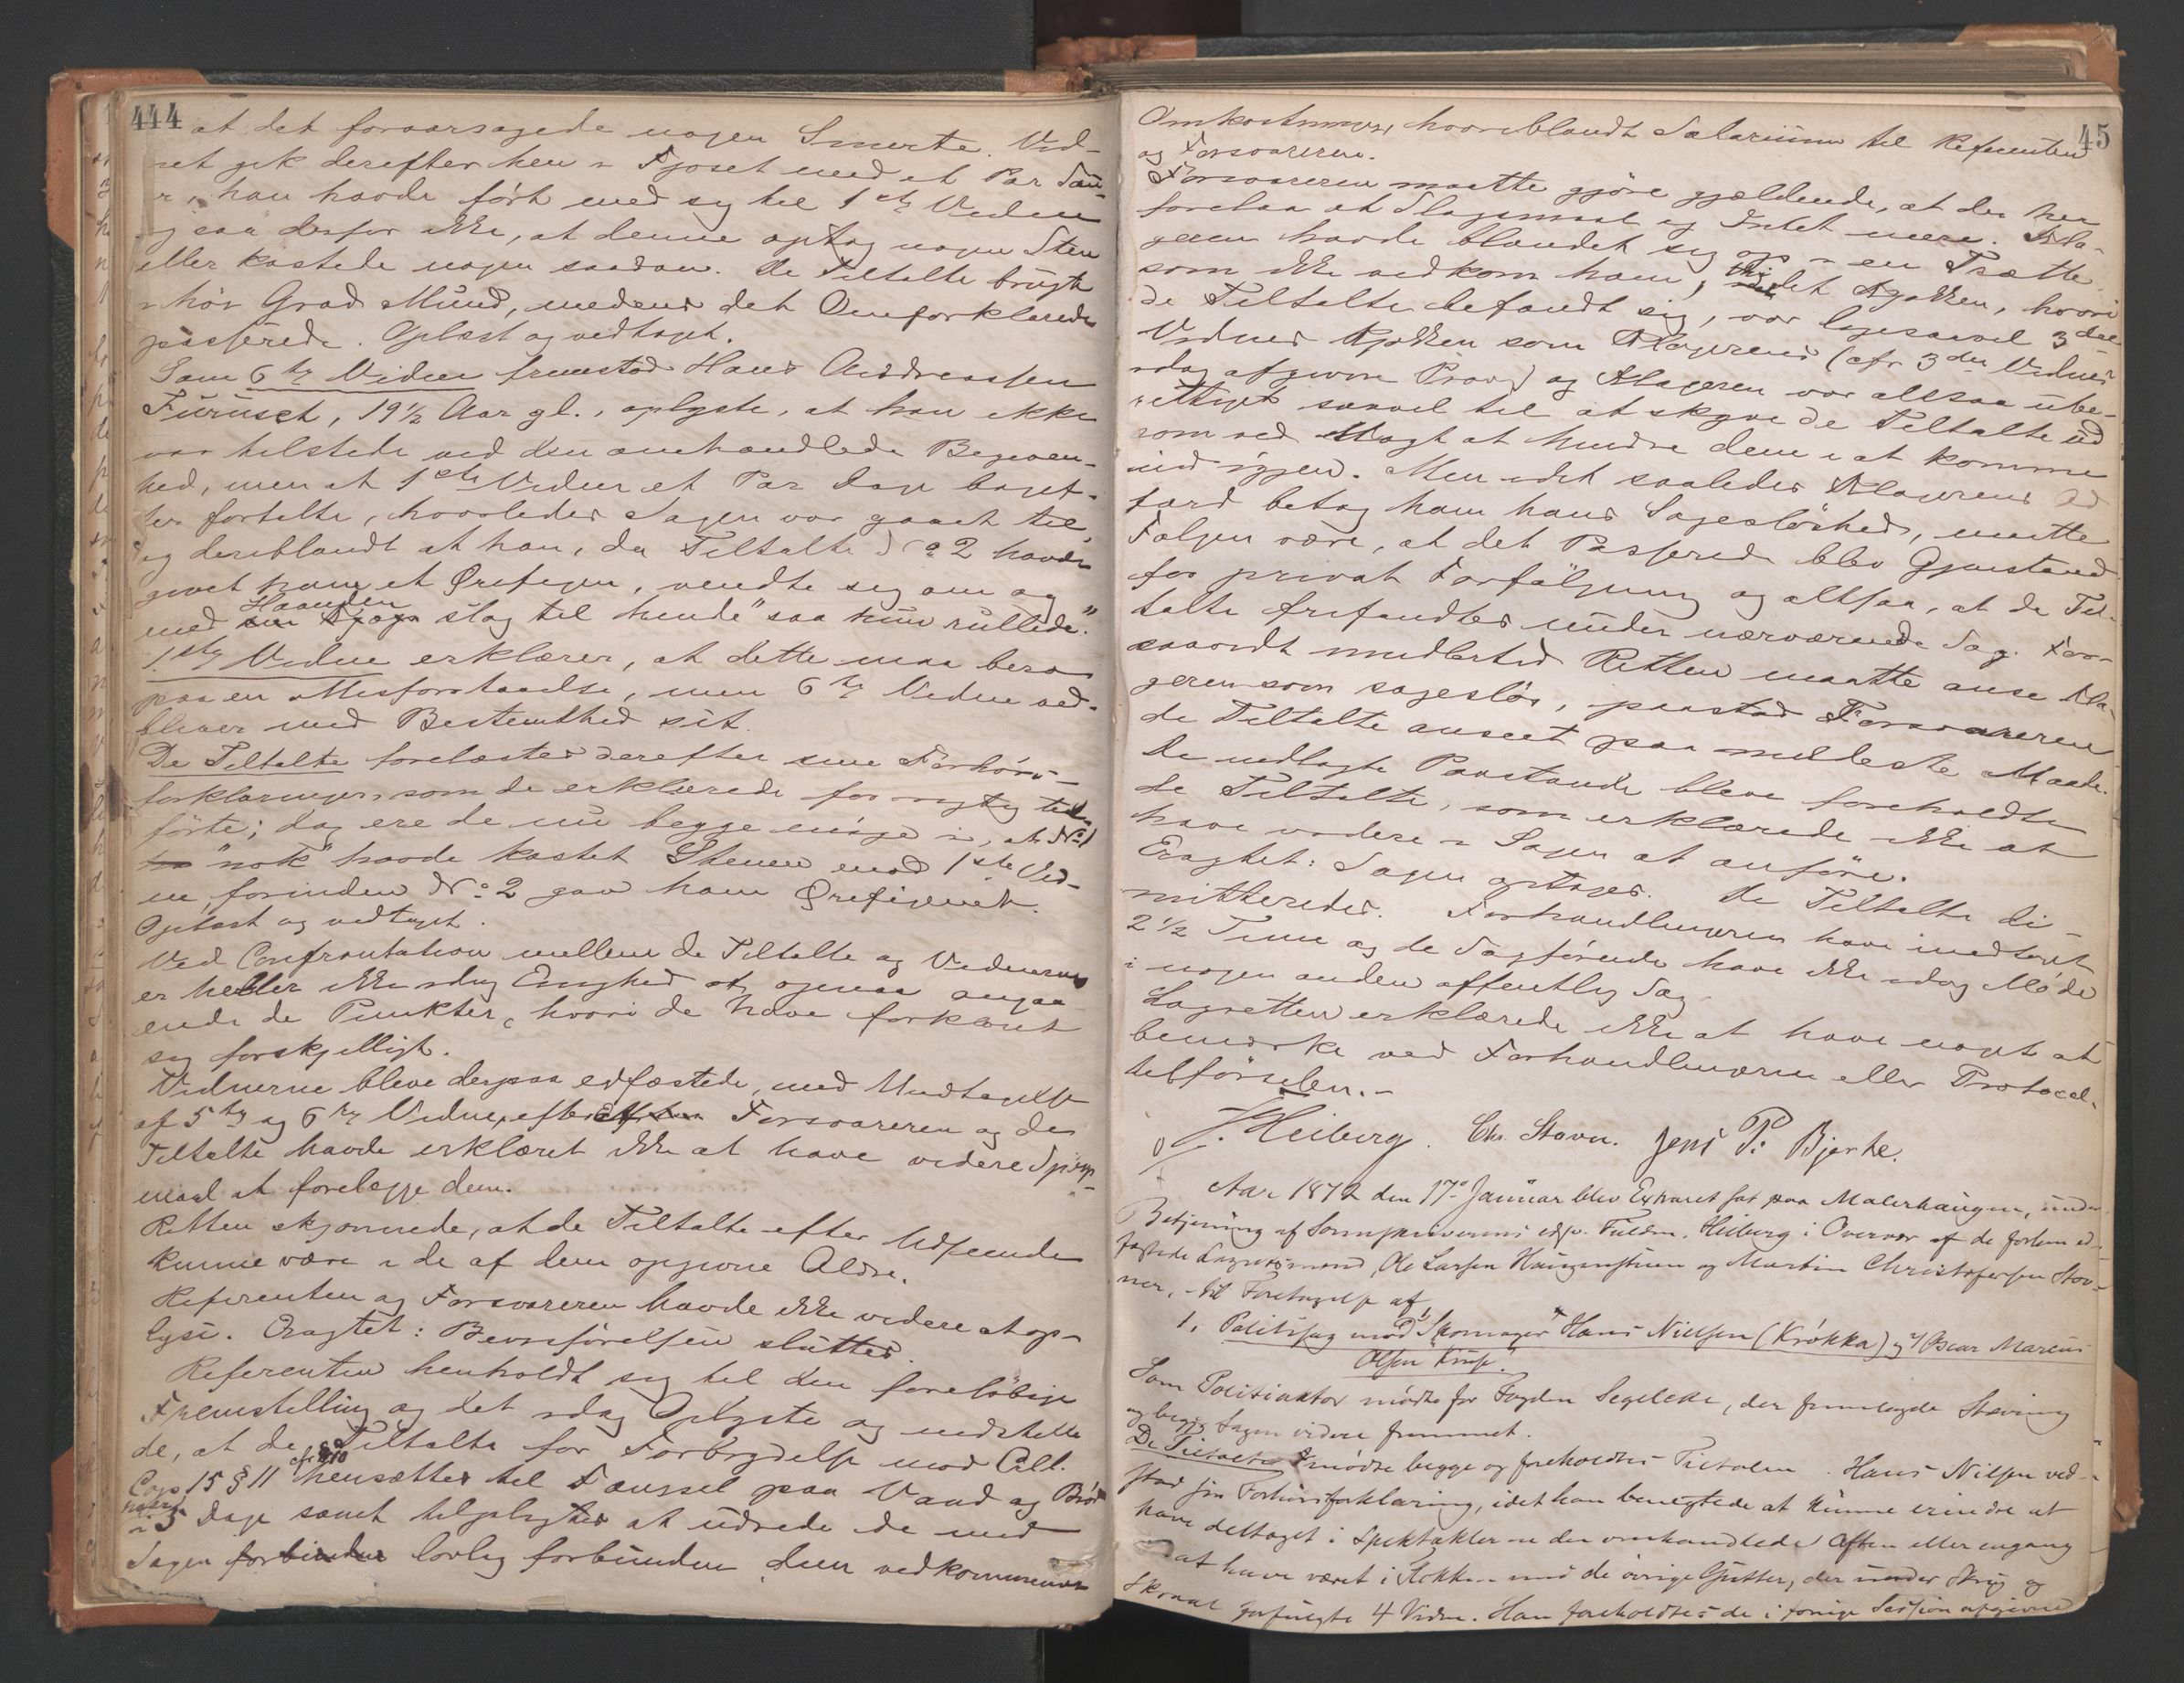 444
at det foraarsagede nogen Smerte. Vid-
net gik derefter hen i Fjøset med et Par Sau-
er, han havde ført med sig til 1ste Vidne
og saa derfor ikke, at denne optog nogen Sten
eller kastede nogen saadan. De Tiltalte brugte
i høi Grad Mund, medens det Omforklarede
passerede. Oplæst og vedtaget.
Som 6te Vidne fremstod Hans Andreassen
Furuset, 19½ Aar gl., oplyste, at han ikke
var tilstede ved den omhandlede Begiven-
hed, men at 1ste Vidne et Par Dage baget-
ter fortalte, hvorledes Sagen var gaaet til,
og deriblandt at han, da Tiltalte No 2 havde
givet ham et Ørefigen, vendte sig om og
med Haanden slog til hende "saa hun rullede."
1ste Vidne erklærer, at dette maa bero
paa en Misforstaaelse, men 6te Vidne ved-
bliver med Bestemthed sit.
De Tiltalte forelæstes derefter sine Forhørs-
forklaringer, som de erklærede for rigtig til-
førte; dog ere de nu begge enige i, at No 1
"nok" havde kastet Stenen mod 1ste Vid-
ne, forinden No 2 gav ham Ørefigenet.
Oplæst og vedtaget.
Ved Confrontation mellem de Tiltalte og Vidnerne
er heller ikke idag Enighed at opnaa angaa-
ende de Punkter, hvori de have forklaret
sig forskjelligt.
Vidnerne bleve derpaa edfæstede, med Undtagelse
af 5te og 6te Vidne, efterat Forsvareren og de
Tiltalte havde erklæret ikke at have videre Spørgs-
maal at forelægge dem.
Retten skjønnede, at de Tiltalte efter Udseende
kunne være i de af dem opgivne Aldre.
Referenten og Forsvareren havde ikke videre at op-
lyse. Eragtet: Bevisførelsen sluttes.
Referenten henholdt sig til den foreløbige
Fremstilling og det idag Oplyste og indstille-
de, at de Tiltalte for Forbrydelse mod Crll.
Cap 15 § 11 cfr § 10 hensættes til Fængsel paa Vand og Brød
i 5 Dage samt tilpligtes at udrede de med
Sagen forbinder lovlig forbunden dem vedkommende
45
Omkostninger, hvoriblandt Salarium til Referenten
og Forsvareren.
Forsvareren maatte gjøre gjældende, at der her
forelaa et Slagsmaal og Intet mere. Kla-
geren havde blandet sig op i en Trætte
som ikke vedkom ham, thi det Kjøkken, hvori
de Tiltalte befandt sig, var ligesaavel 3die
Vidnes Kjøkken som Klagerens (cfr 3die Vidnes
idag afgivne Prov) og Klageren var altsaa ube-
rettiget saavel til at skyve de Tiltalte ud
som ved Magt at hindre dem i at komme
ind igjen. Men idet saaledes Klagerens Ad
færd betog ham hans Sagesløshed, maatte
Følgen være, at det Passerede blev Gjenstand
for privat Forfølgning og altsaa, at de Til-
talte frifandtes under nærværende Sag. For-
saavidt imidlertid Retten maatte anse Kla-
geren som sagesløs, paastod Forsvareren
de Tiltalte anseet paa mildeste Maade.
De nedlagte Paastande bleve foreholdte
de Tiltalte, som erklærede ikke at
have videre i Sagen at anføre.
Eragtet: Sagen optages. De Tiltalte di-
mitteredes. Forhandlingerne have medtaget
2½ Time og de Sagførende have ikke idag Møde
i nogen anden offentlig Sag.
Lagretten erklærede ikke at have noget at
bemærke ved Forhandlingerne eller Protocol-
tilførselen.-
J. Heiberg. Chr. Stovn. Jens P. Bjerke.
Aar 1872 den 17de Januar blev Extraret sat paa Malerhaugen, under
Betjening af Sorenskriverens edsv. Fuldm. Heiberg i Overvær af de forhen ed-
fæstede Lagrettesmænd, Ole Larsen Haugerstuen og Martin Christofersen Stov-
ner, - til Foretagelse af
1. Politisag mod 1) Skomager Hans Nielsen (Krøkka) og 2) Oscar Marcus
Olsen
Som Politiaktor mødte for Fogden Segelcke, der fremlagde Stævning
og begj. Sagen videre fremmet.
De Tiltalte mødte begge og foreholdtes Tiltalen. Hans Nilsen ved-
stod sin Forhørsforklaring, idet han benegtede at kunne erindre at
have deltaget i Spektaklerne den omhandlede Aften eller engang
at have været i Flokken med de øvrige Gutter, der under Skrig og
Skraal forfulgte 4 Vidne. Han foreholdtes de i forrige Session afgivne